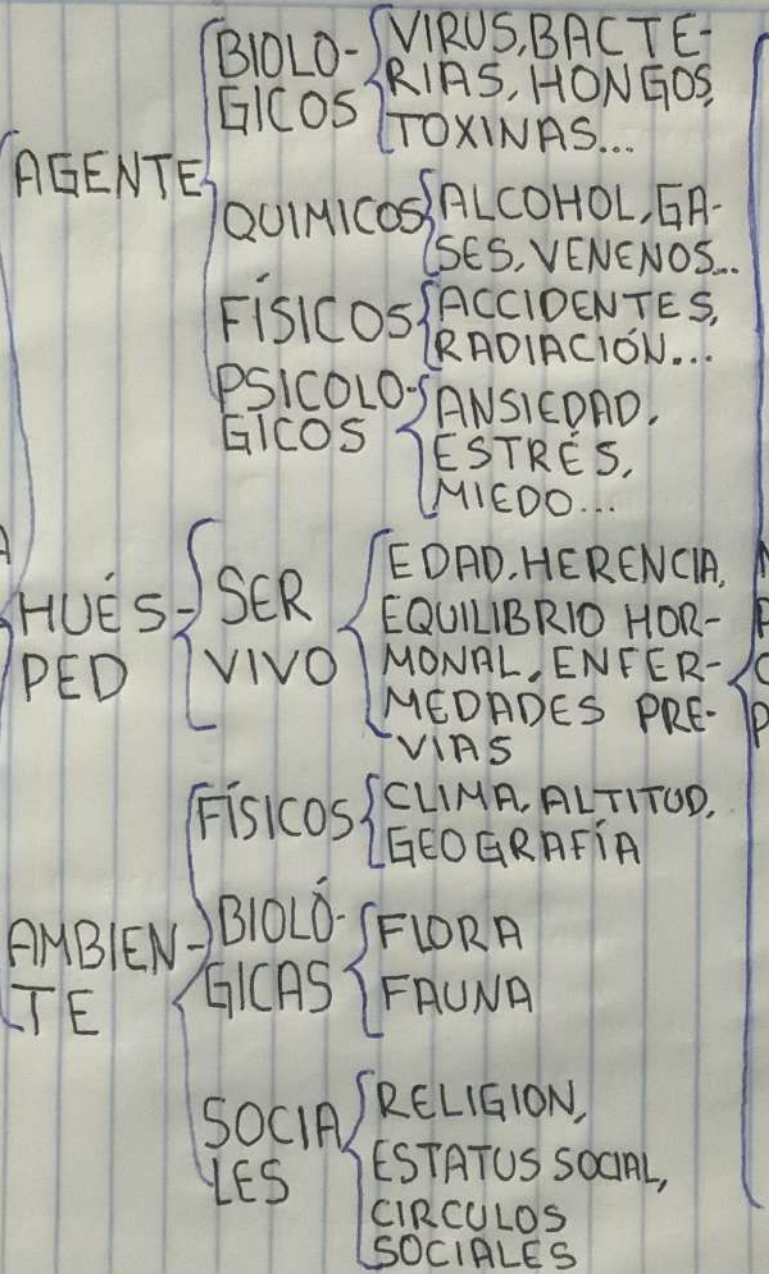 BIOLO-
GICOS
VIRUS, BACTE-
RIAS, HONGOS,
TOXINAS...
AGENTE
QUIMICOS
ALCOHOL, GA-
SES, VENENOS...
FÍSICOS
ACCIDENTES,
RADIACIÓN...
PSICOLO-
GICOS
ANSIEDAD,
ESTRÉS,
MIEDO...
HUÉS-
PED
SER
VIVO
EDAD, HERENCIA,
EQUILIBRIO HOR-
MONAL, ENFER-
MEDADES PRE-
VIAS
AMBIEN-
TE
FÍSICOS
CLIMA, ALTITUD,
GEOGRAFÍA
BIOLÓ-
GICAS
FLORA
FAUNA
SOCIA
LES
RELIGION,
ESTATUS SOCIAL,
CIRCULOS
SOCIALES